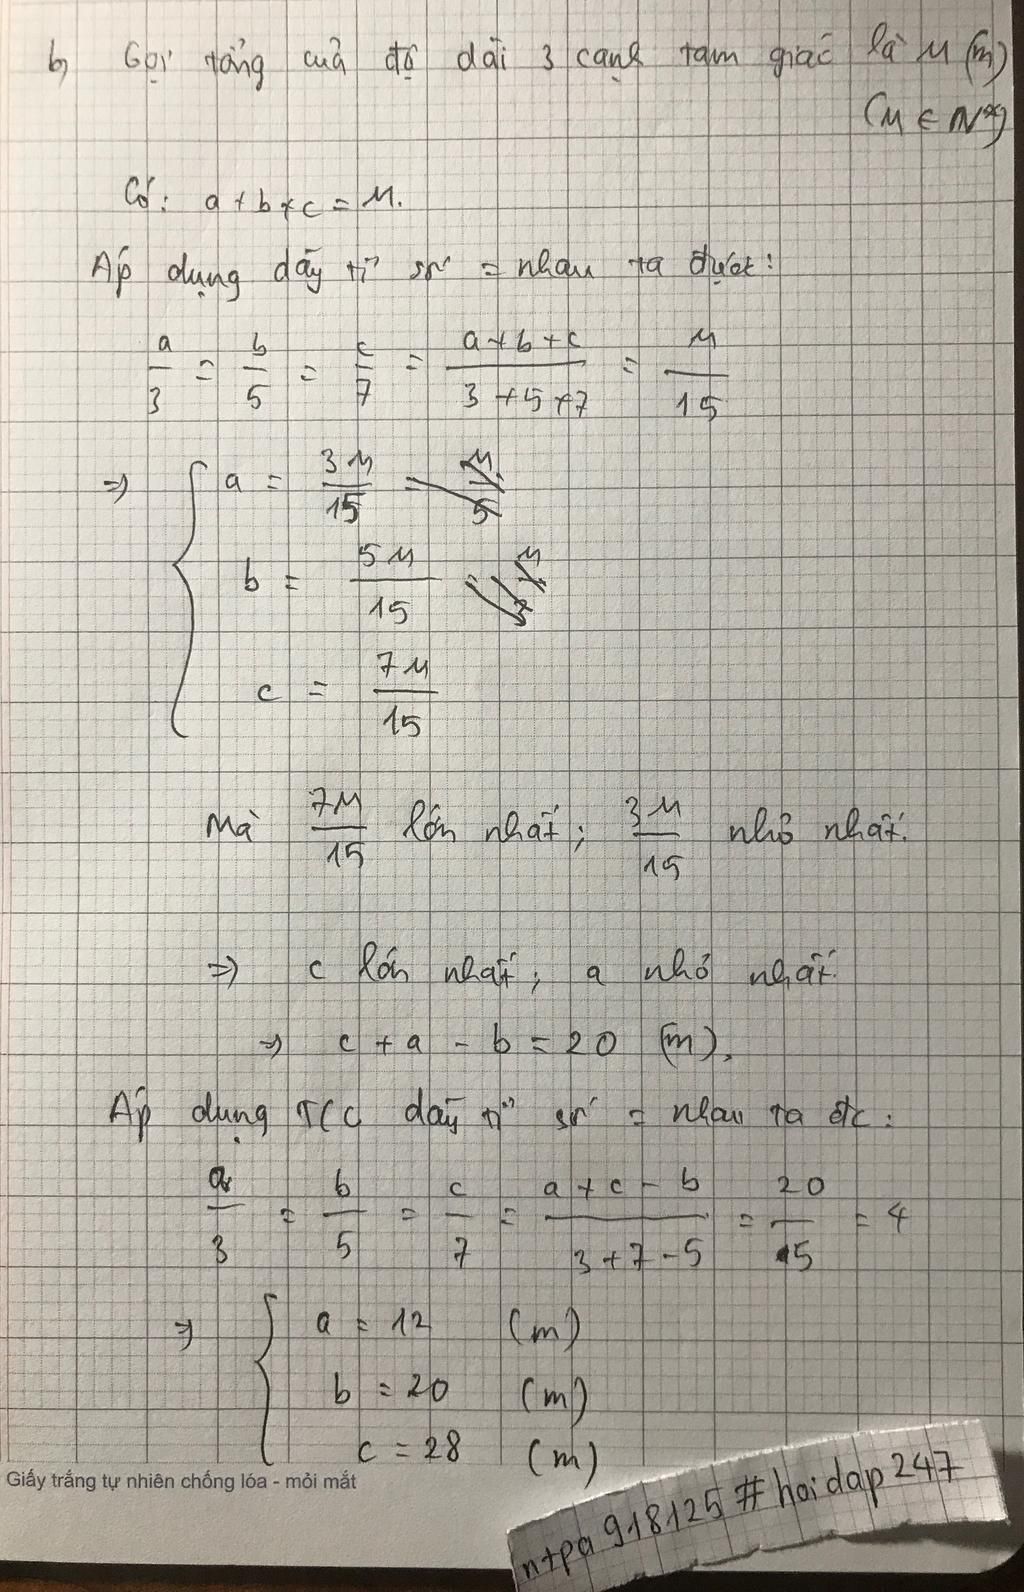 b, Gọi tổng của độ dài 3 cạnh tam giác là M (m)
(M ∈ N*)
Có: a + b + c = M.
Áp dụng dãy tỉ số = nhau ta được:
a/3 = b/5 = c/7 = (a+b+c)/(3+5+7) = M/15
=> { a = 3M/15
b = 5M/15
c = 7M/15
Mà 7M/15 lớn nhất; 3M/15 nhỏ nhất.
=> c lớn nhất; a nhỏ nhất.
=> c + a - b = 20 (m).
Áp dụng TCC dãy tỉ số = nhau ta đc:
a/3 = b/5 = c/7 = (a+c-b)/(3+7-5) = 20/5 = 4
=> { a = 12 (m)
b = 20 (m)
c = 28 (m)
Giấy trắng tự nhiên chống lóa - mỏi mắt
ntpa918125#hoidap247